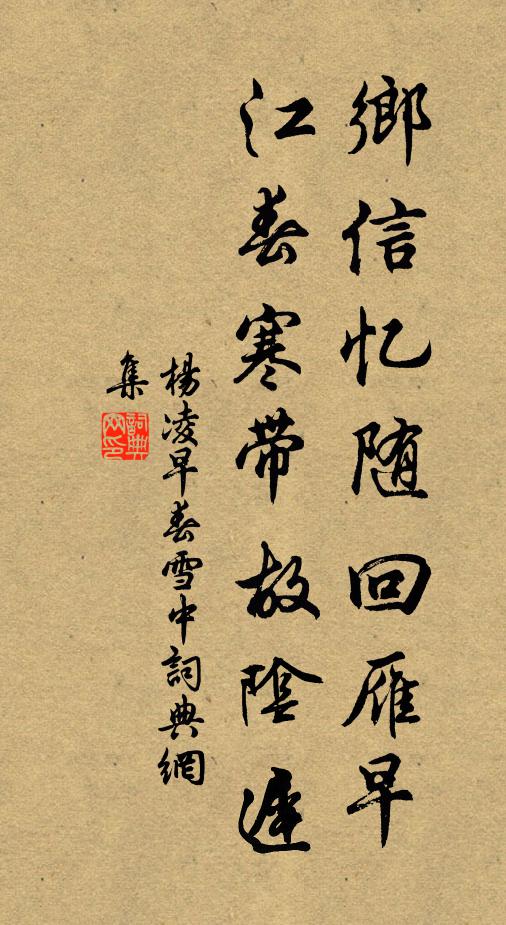 鄉信忆随回雁早
江春寒带故陰遲
楊凌早春雪中詞典網
集
詞典網印